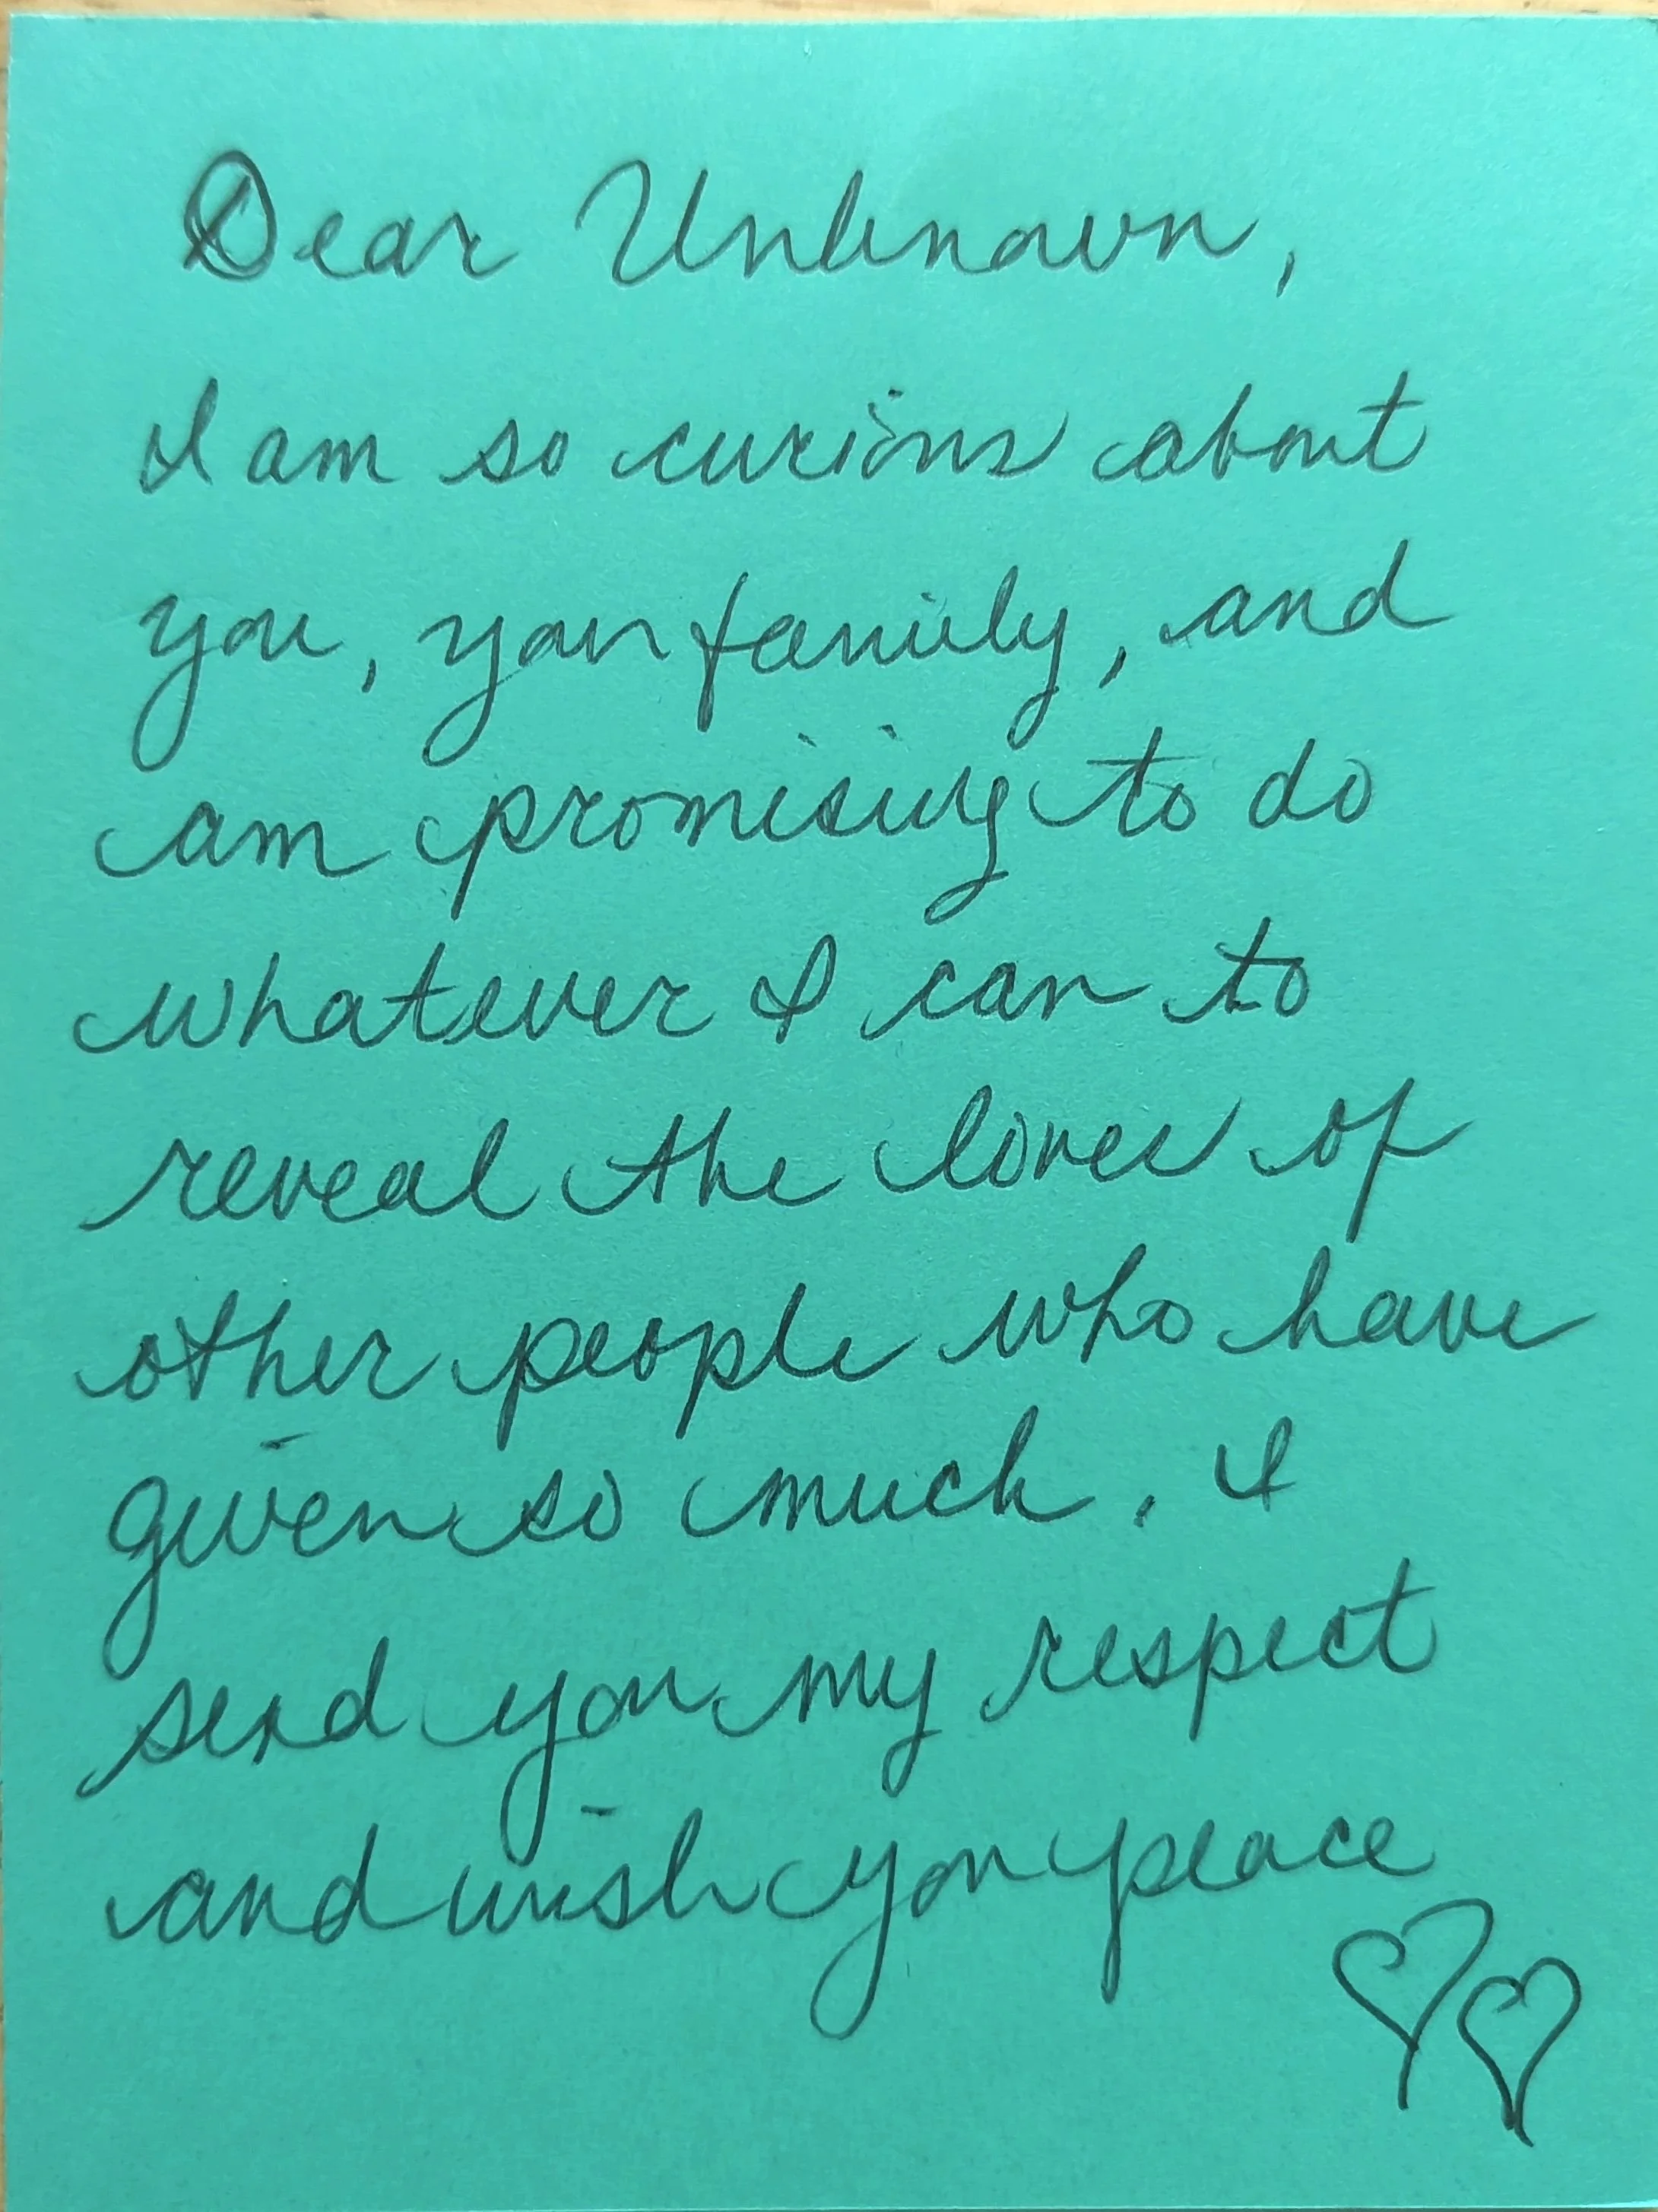 Dear Unknown,
I am so curious about
you, your family, and
am promising to do
whatever I can to
reveal the loves of
other people who have
given so much. I
send you my respect
and wish you peace